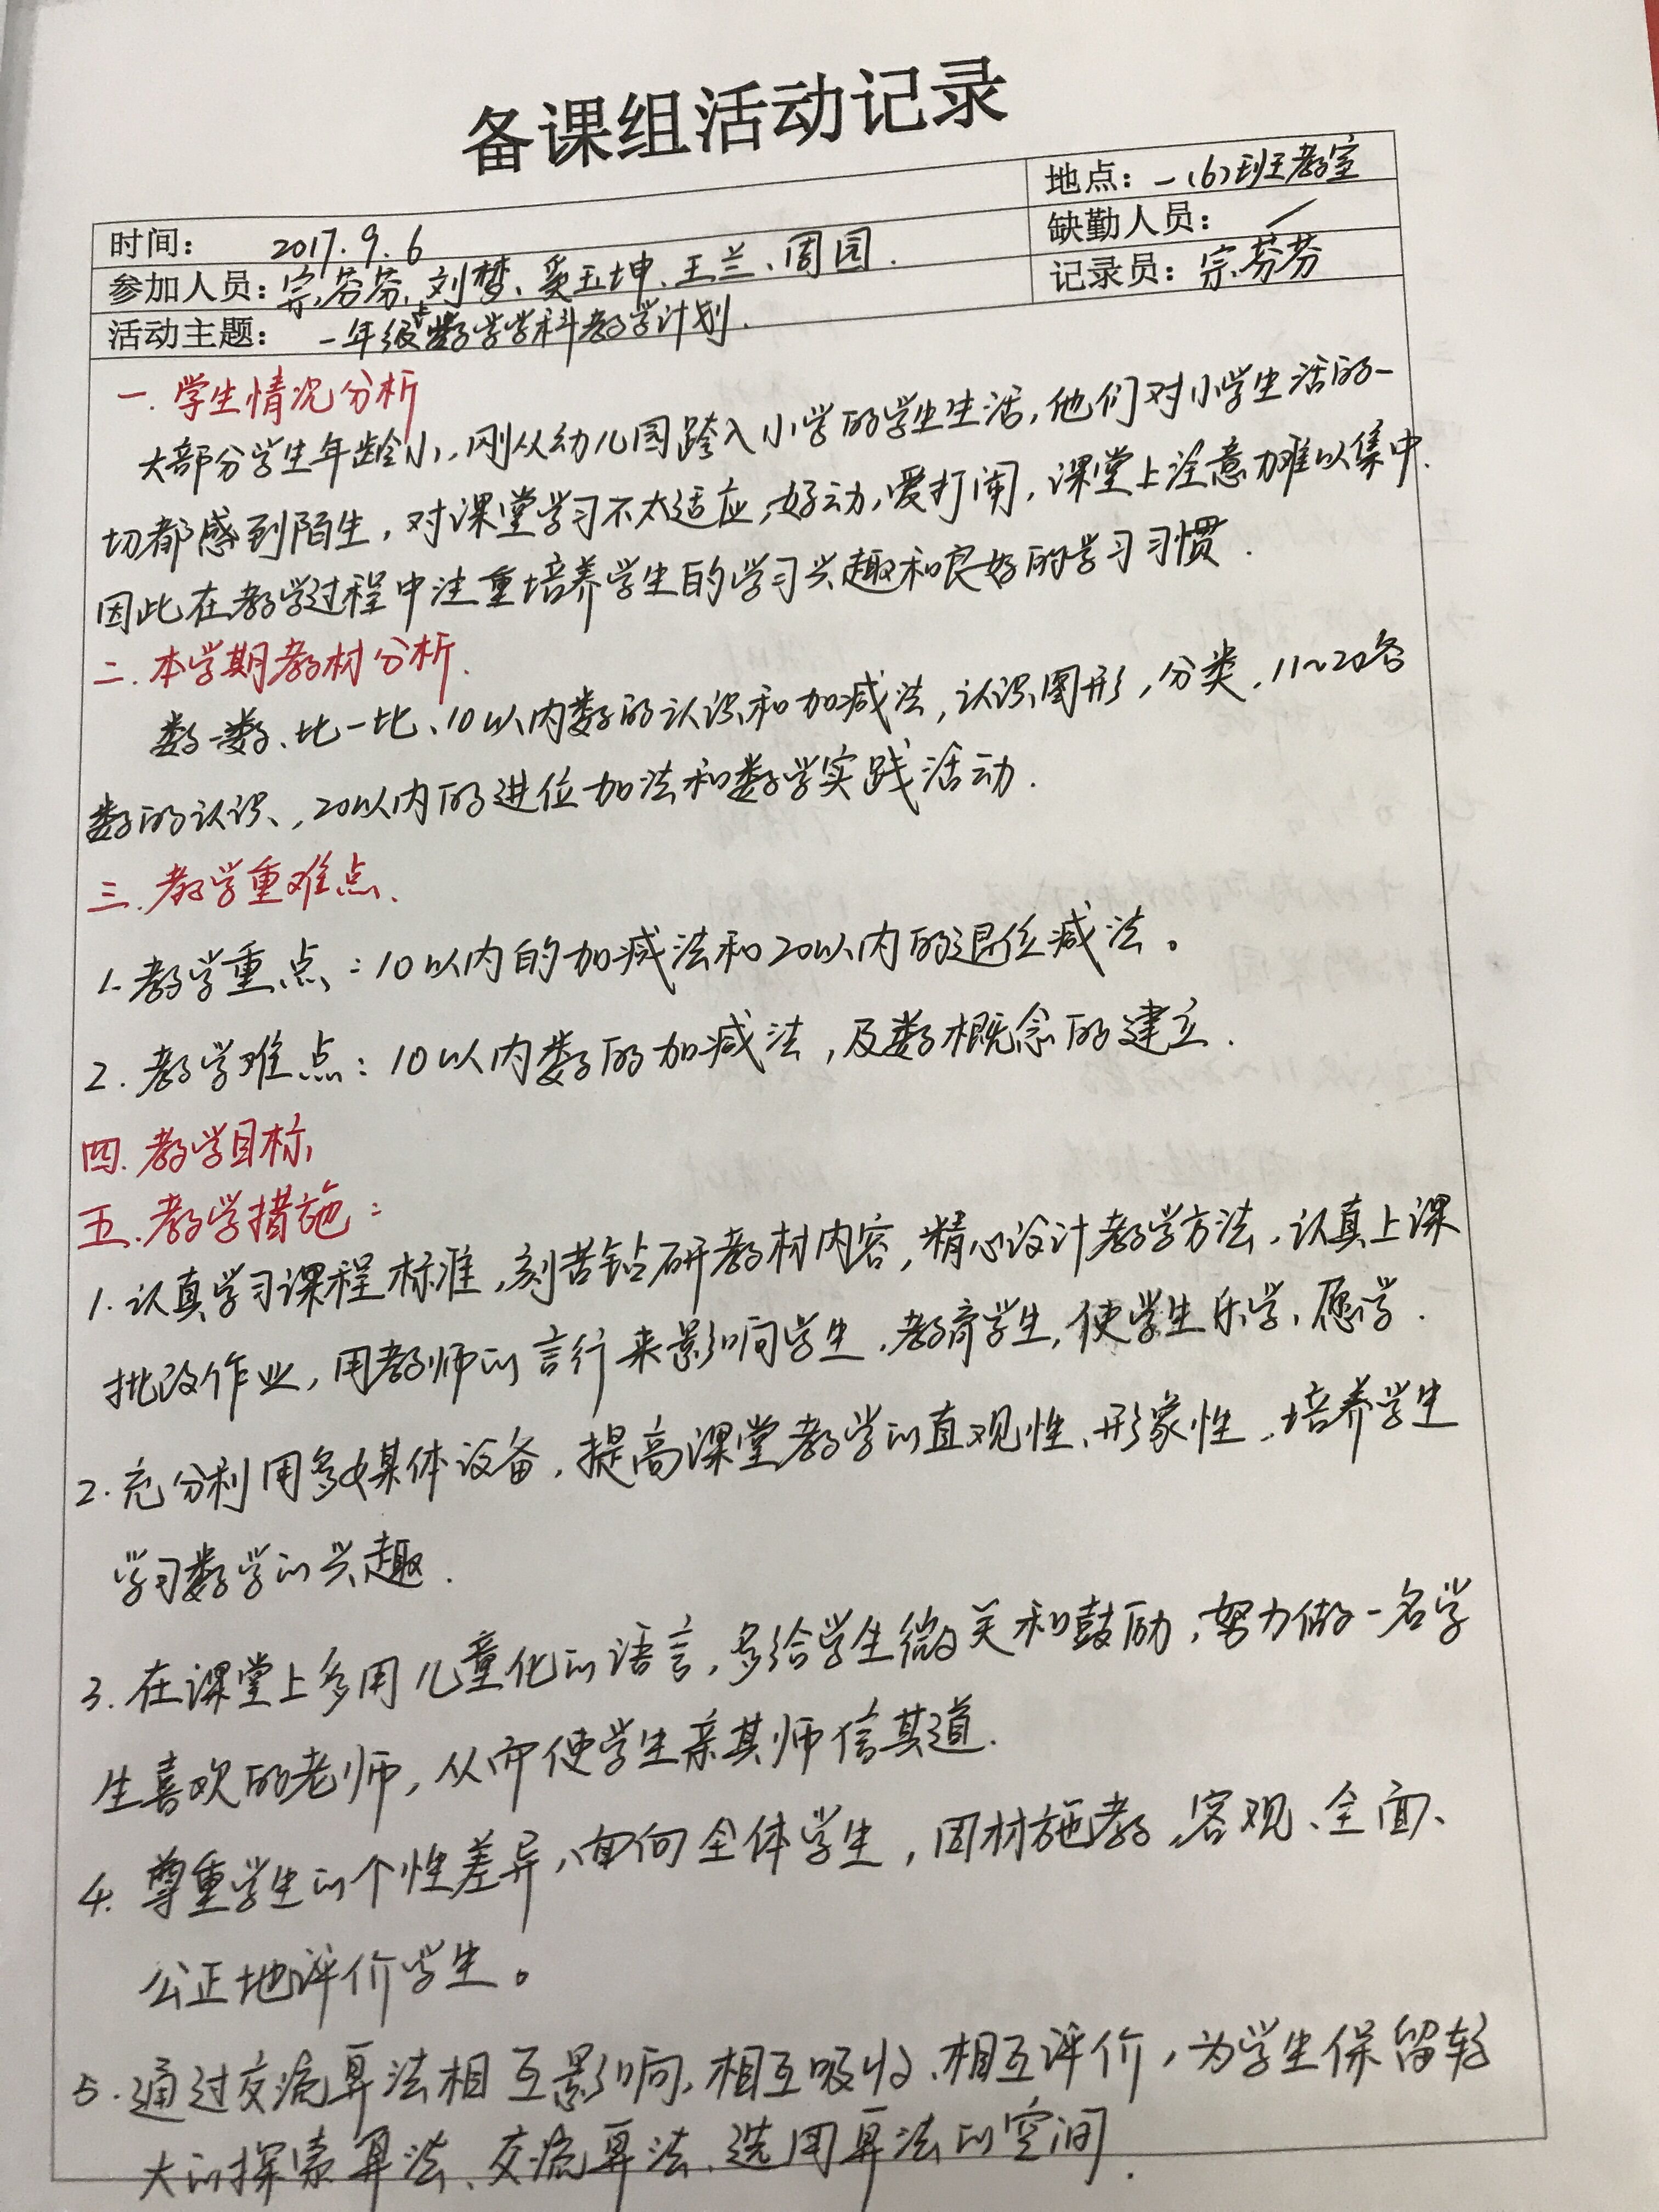 备课组活动记录
时间: 2017.9.6 地点: 一(6)班教室
参加人员: 宗芬芬、刘梦、奚玉坤、王兰、周园. 缺勤人员: /
活动主题: 一年级上数学学科教学计划. 记录员: 宗芬芬
一. 学生情况分析
大部分学生年龄小,刚从幼儿园跨入小学的学生生活,他们对小学生活的一
切都感到陌生,对课堂学习不太适应,好动,爱打闹,课堂上注意力难以集中.
因此在教学过程中注重培养学生的学习兴趣和良好的学习习惯.
二.本学期教材分析.
数一数、比一比、10以内数的认识和加减法,认识图形,分类,11~20各
数的认识、,20以内的进位加法和数学实践活动.
三.教学重难点.
1.教学重点:10以内的加减法和20以内的退位减法。
2.教学难点:10以内数的加减法,及数概念的建立.
四.教学目标
五.教学措施:
1.认真学习课程标准,刻苦钻研教材内容,精心设计教学方法,认真上课
批改作业,用教师的言行来影响学生,教育学生,使学生乐学、愿学.
2.充分利用多媒体设备,提高课堂教学的直观性、形象性,培养学生
学习数学的兴趣.
3.在课堂上多用儿童化的语言,多给学生微关和鼓励,努力做一名学
生喜欢的老师,从而使学生亲其师信其道.
4.尊重学生的个性差异,面向全体学生,因材施教,客观、全面、
公正地评价学生。
5.通过交流算法相互影响,相互吸收、相互评价,为学生保留较
大的探索算法、交流算法、选用算法的空间.